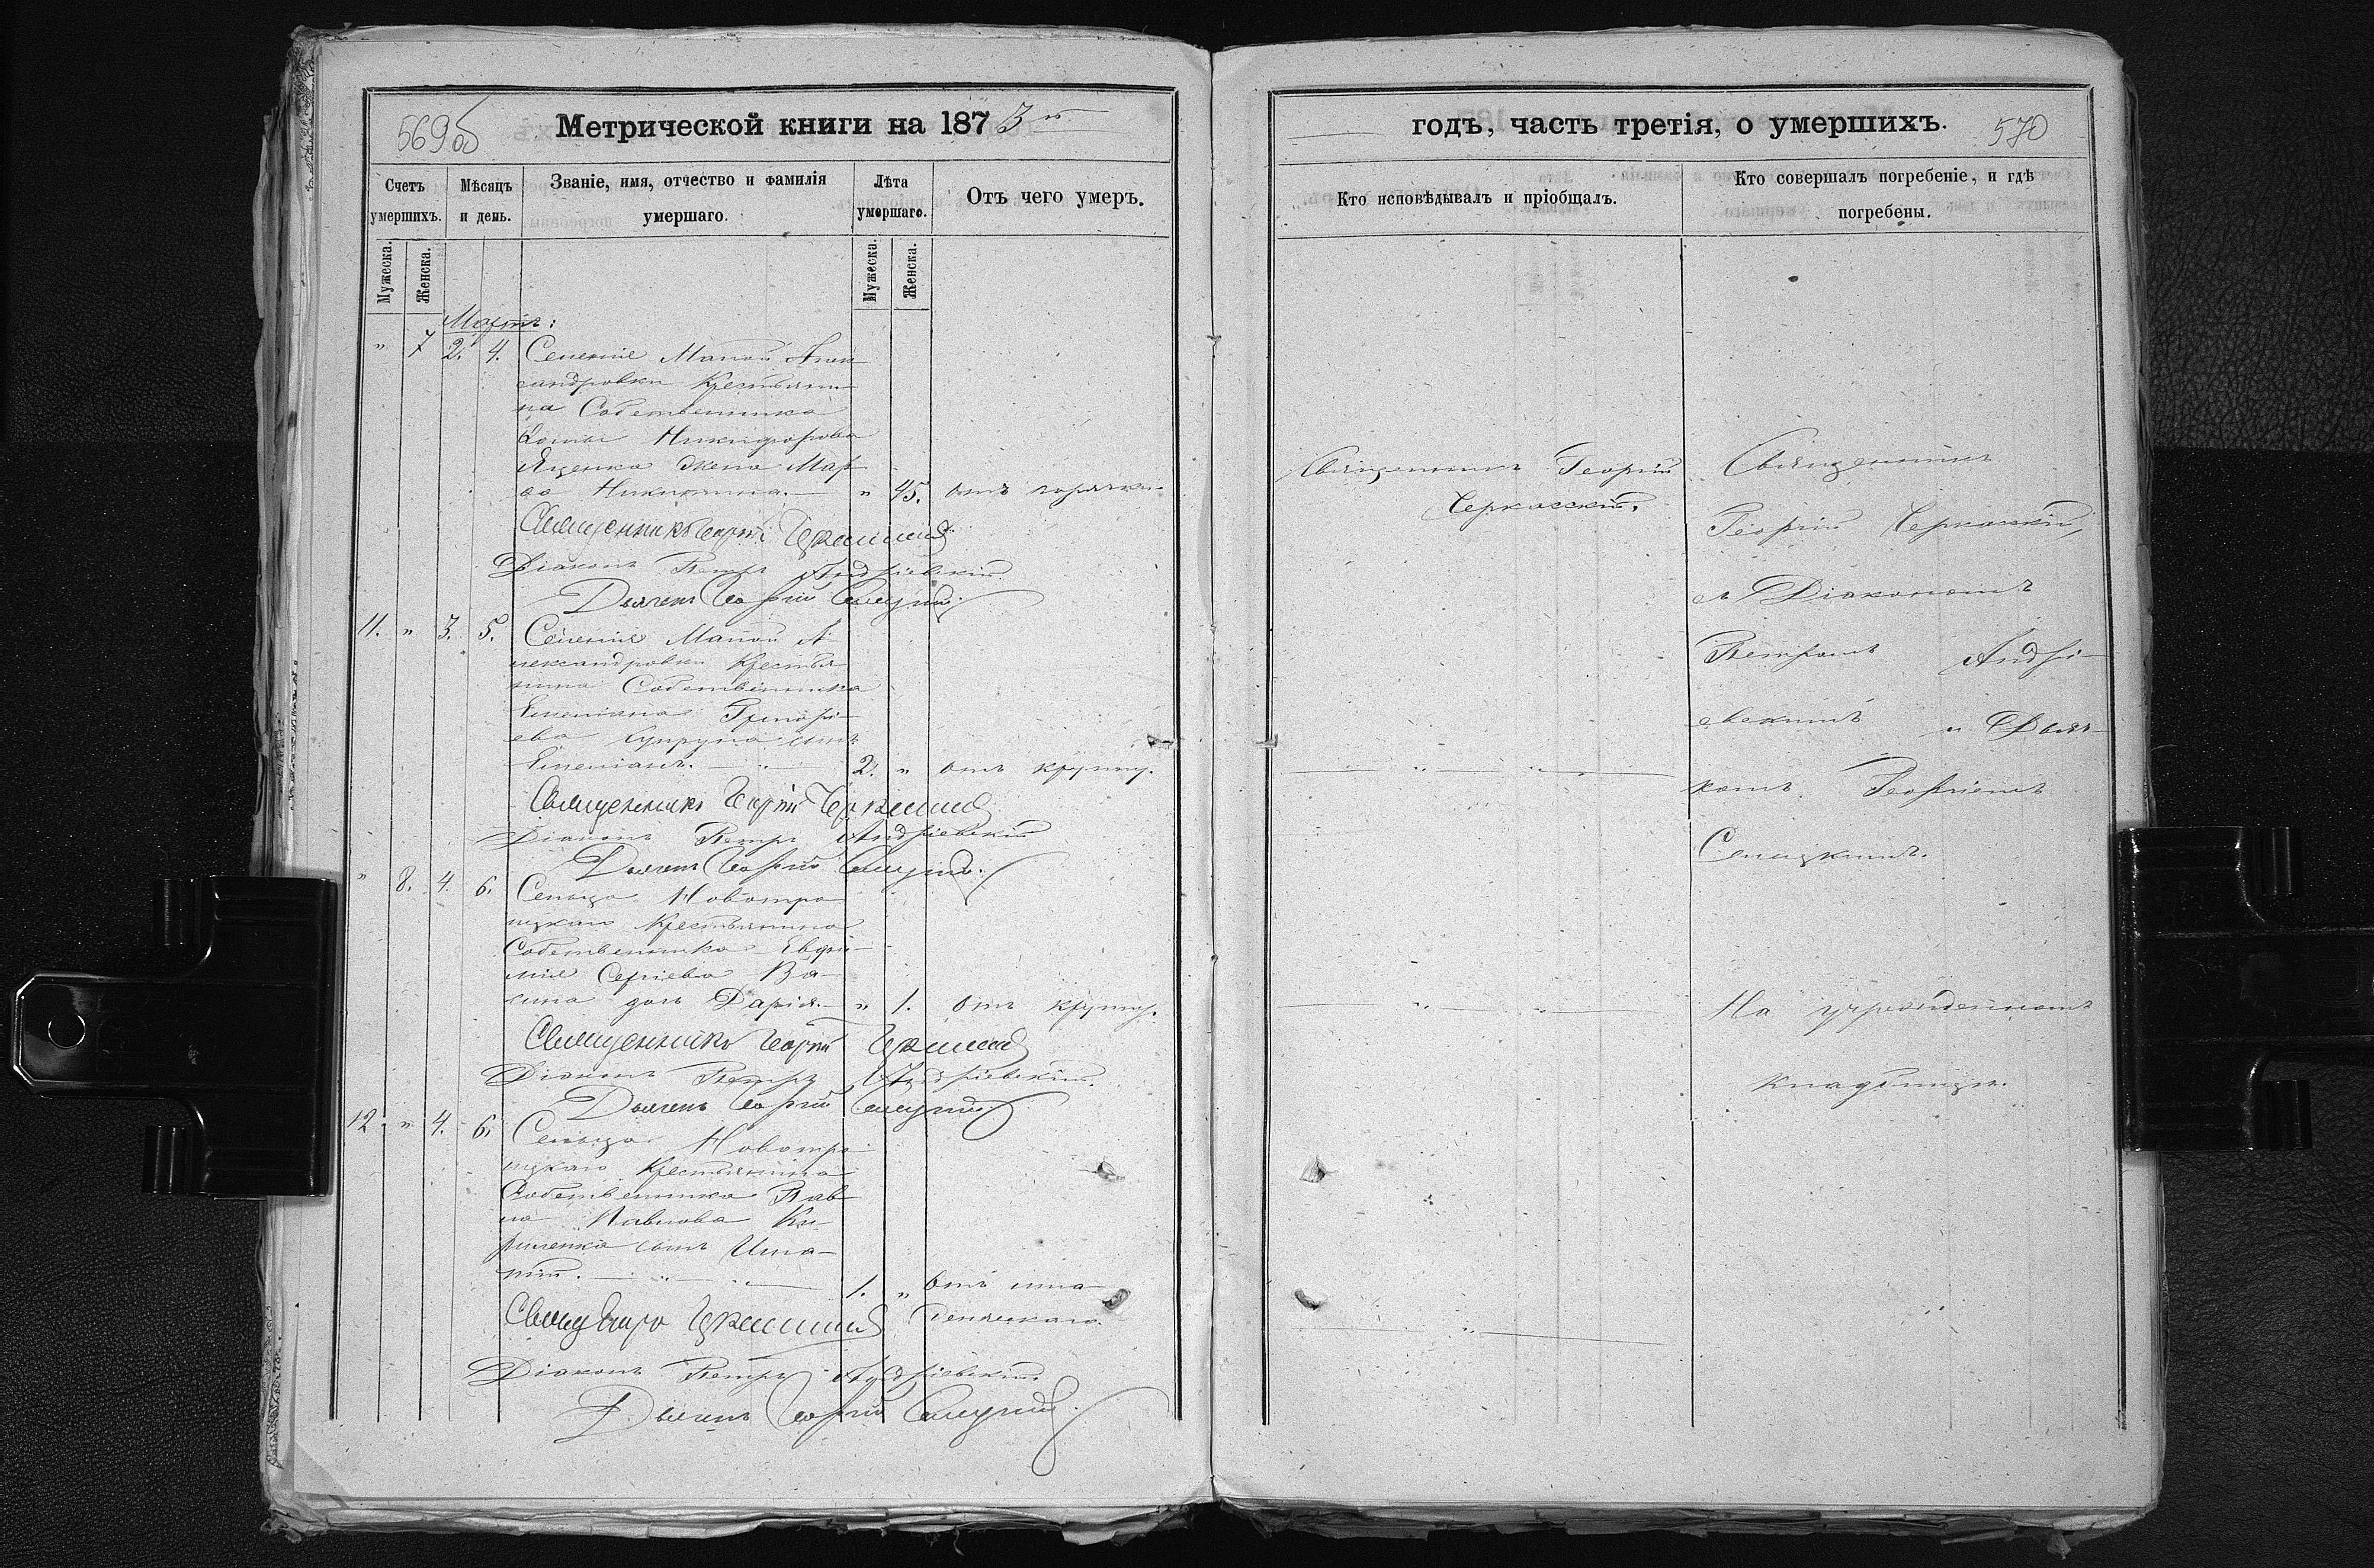 569об
Метрической книги на 1873й
Счетъ умершихъ.
Мѣсяцъ и день.
Званіе, имя, отчество и фамилія умершаго.
Лѣта умершаго.
Отъ чего умеръ.
Мужеска.
Женска.
Мужеска.
Женска.
Мартъ:
" 7 2. 4. Селенія Малой Алек-
сандровки Крестьяни-
на Собственника
Никифорова
Яценка жена Мар-
ѳа Никитина. " 45. отъ горячки
Священникъ Георгій Черкасскій
Діаконъ Петръ Андріевскій.
Дьячекъ Георгій Селецкій
11. " 3. 5. Селенія Малой А-
лександровки Крестья-
нина Собственника
Емеліана Григорі-
ева Супруна сынъ
Емеліанъ. 2. " отъ крупу.
Священникъ Георгій Черкасскій
Діаконъ Петръ Андріевскій
Дьячекъ Георгій Селецкій.
" 8. 4. 6. Сельца Новотро-
ицкаго Крестьянина
Собственника Евфи-
мія Сергіева Ва-
сина дочь Дарія. " 1. отъ крупу.
Священникъ Георгій Черкасскій
Діаконъ Петръ Андріевскій.
Дьячекъ Георгій Селецкій
12. " 4. 6. Сельца Новотро-
ицкаго Крестьянина
Собственника Пав-
ла Павлова Ки-
риленка сынъ Ипа-
тій. 1. " Отъ мла-
денческаго.
Священ Георгій Черкасскій
Діаконъ Петръ Андріевскій.
Дьячекъ Георгій Селецкій.
годъ, часть третія, о умершихъ.
570
Кто исповѣдывалъ и пріобщалъ.
Кто совершалъ погребеніе, и гдѣ погребены.
Священникъ Георгій
Черкасскій.
Священникъ
Георгій Черкасскій,
съ Діакономъ
Петромъ Андрі-
евскимъ и Дьяч-
комъ Георгіемъ
Селецкимъ.
На учрежденномъ
кладбищѣ.